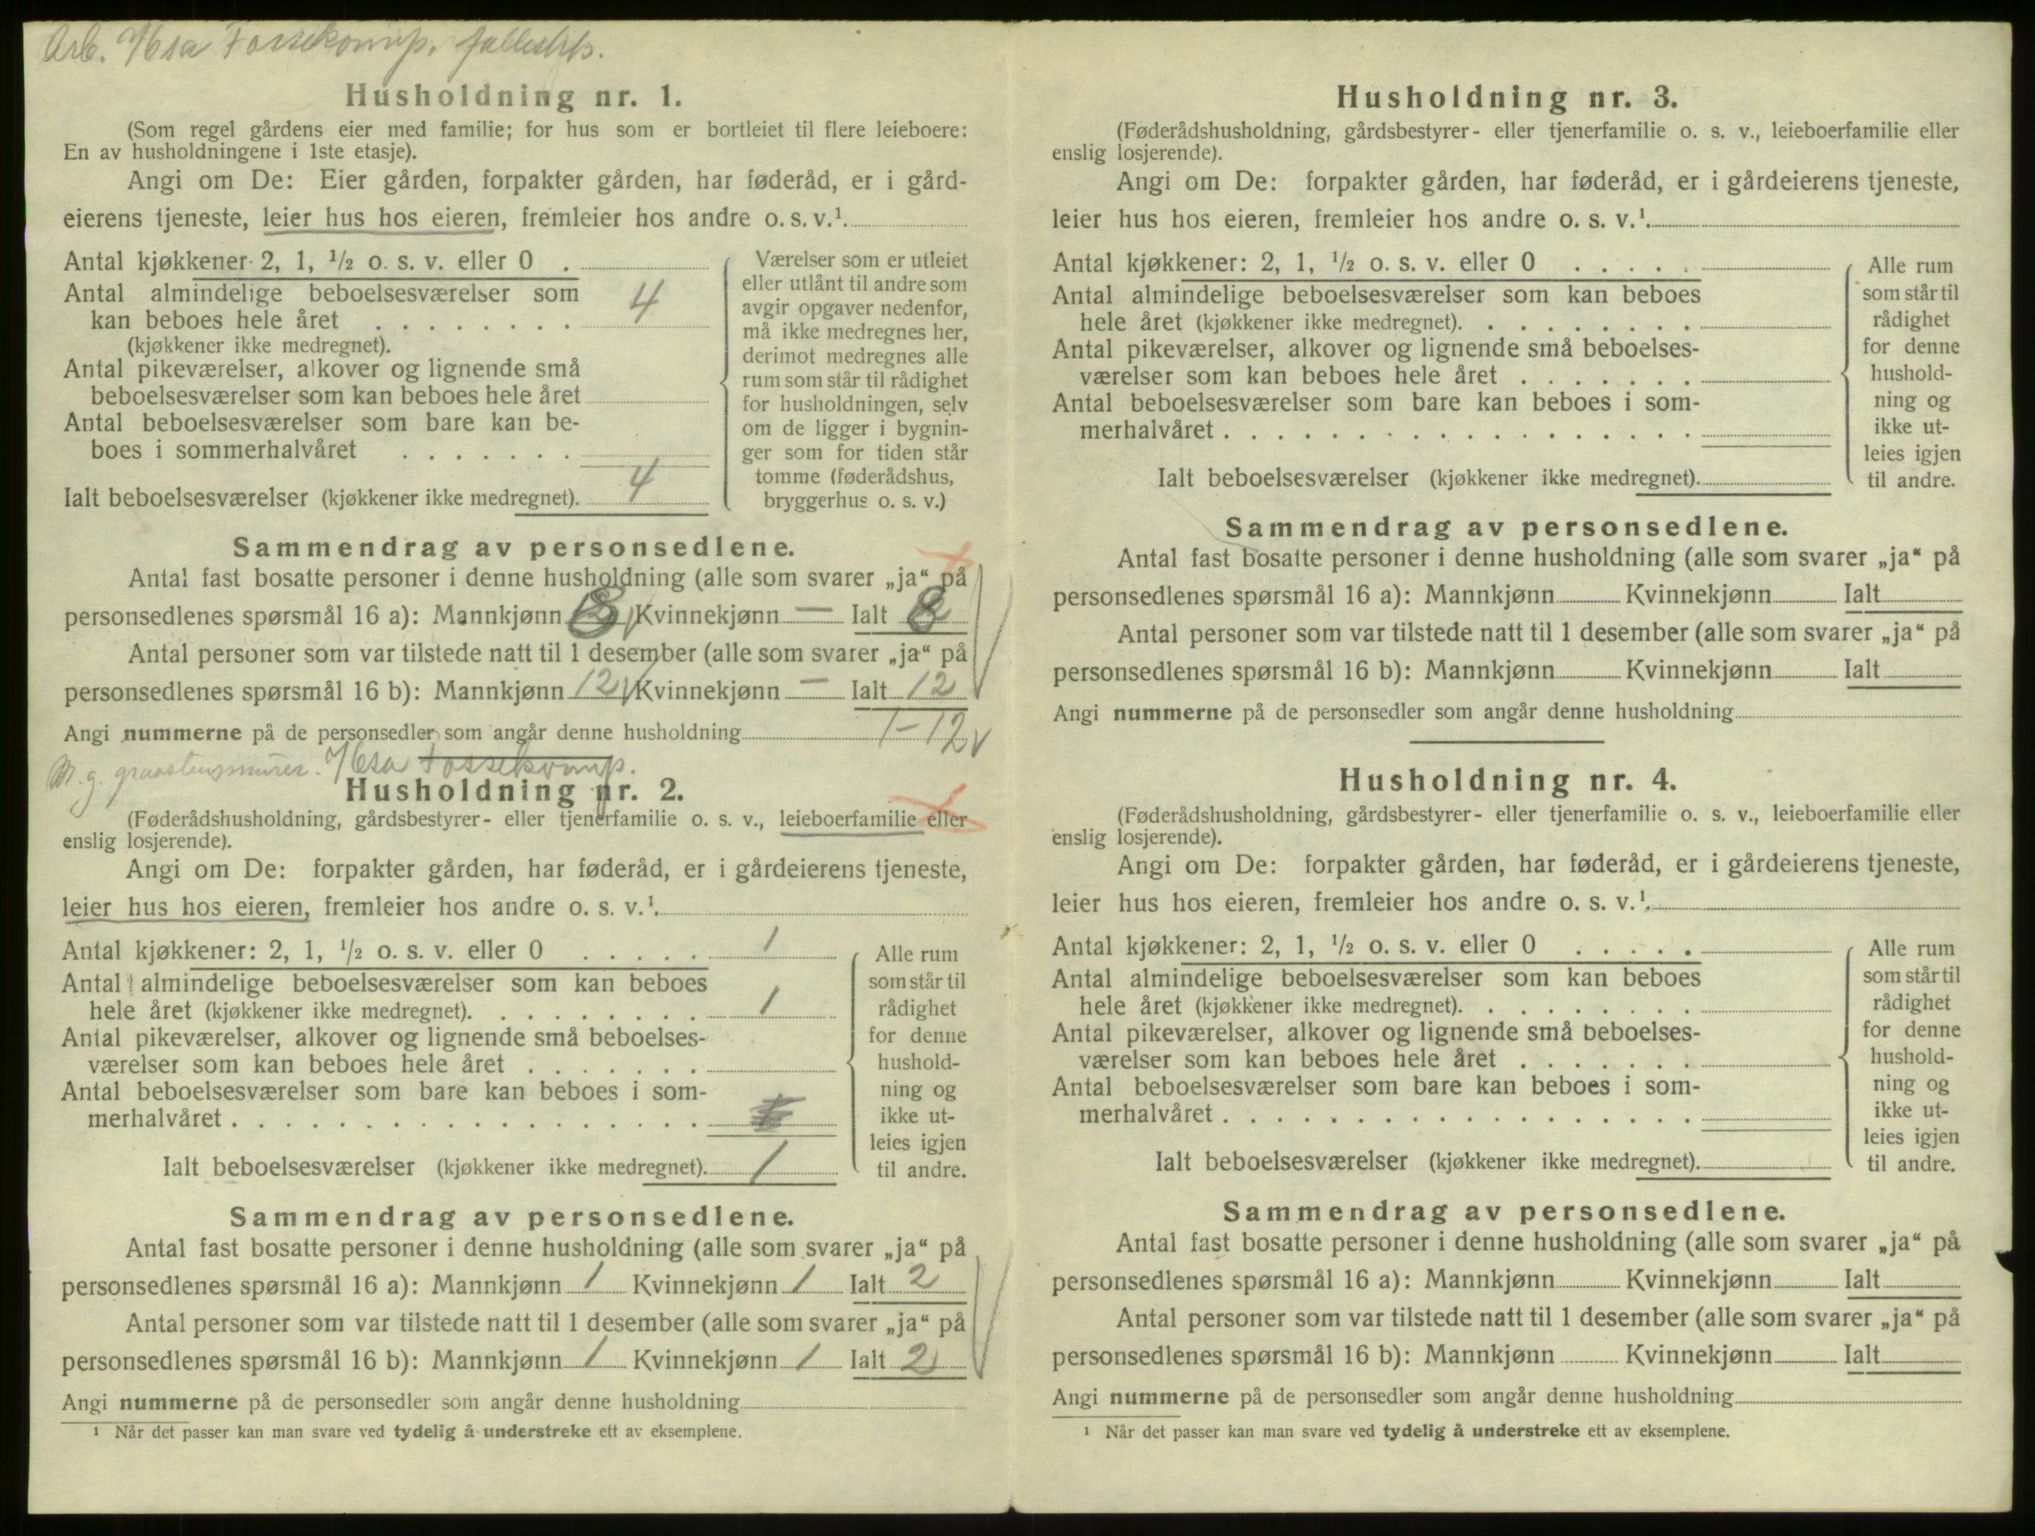 Arb. Hsa Fossekomp.
Husholdning nr. 1.
(Som regel gårdens eier med familie; for hus som er bortleiet til flere leieboere:
En av husholdningene i 1ste etasje).
Angi om De: Eier gården, forpakter gården, har føderåd, er i gård-
eierens tjeneste, leier hus hos eieren, fremleier hos andre o. s. v.¹
Antal kjøkkener 2, 1, ½ o. s. v. eller 0
Antal almindelige beboelsesværelser som
kan beboes hele året 4
(kjøkkener ikke medregnet).
Antal pikeværelser, alkover og lignende små
beboelsesværelser som kan beboes hele året
Antal beboelsesværelser som bare kan be-
boes i sommerhalvåret
Ialt beboelsesværelser (kjøkkener ikke medregnet). 4
Værelser som er utleiet
eller utlånt til andre som
avgir opgaver nedenfor,
må ikke medregnes her,
derimot medregnes alle
rum som står til rådighet
for husholdningen, selv
om de ligger i bygnin-
ger som for tiden står
tomme (føderådshus,
bryggerhus o. s. v.)
Sammendrag av personsedlene.
Antal fast bosatte personer i denne husholdning (alle som svarer „ja“ på
personsedlenes spørsmål 16 a): Mannkjønn 8 Kvinnekjønn — Ialt 8
Antal personer som var tilstede natt til 1 desember (alle som svarer „ja“ på
personsedlenes spørsmål 16 b): Mannkjønn 12 Kvinnekjønn — Ialt 12
Angi nummerne på de personsedler som angår denne husholdning 1-12
M. g. graastensmurer. Hsa Fossekomp.
Husholdning nr. 2.
(Føderådshusholdning, gårdsbestyrer- eller tjenerfamilie o. s. v., leieboerfamilie eller
enslig losjerende).
Angi om De: forpakter gården, har føderåd, er i gårdeierens tjeneste,
leier hus hos eieren, fremleier hos andre o. s. v.¹.
Antal kjøkkener: 2, 1, ½ o. s. v. eller 0 1
Antal almindelige beboelsesværelser som kan beboes
hele året (kjøkkener ikke medregnet). 1
Antal pikeværelser, alkover og lignende små beboelses-
værelser som kan beboes hele året
Antal beboelsesværelser som bare kan beboes i som-
merhalvåret
Ialt beboelsesværelser (kjøkkener ikke medregnet). 1
Alle rum
som står til
rådighet
for denne
hushold-
ning og
ikke ut-
leies igjen
til andre.
Sammendrag av personsedlene.
Antal fast bosatte personer i denne husholdning (alle som svarer „ja“ på
personsedlenes spørsmål 16 a): Mannkjønn 1 Kvinnekjønn 1 Ialt 2
Antal personer som var tilstede natt til 1 desember (alle som svarer „ja“ på
personsedlenes spørsmål 16 b): Mannkjønn 1 Kvinnekjønn 1 Ialt 2
Angi nummerne på de personsedler som angår denne husholdning
¹ Når det passer kan man svare ved tydelig å understreke ett av eksemplene.
Husholdning nr. 3.
(Føderådshusholdning, gårdsbestyrer- eller tjenerfamilie o. s. v., leieboerfamilie eller
enslig losjerende).
Angi om De: forpakter gården, har føderåd, er i gårdeierens tjeneste,
leier hus hos eieren, fremleier hos andre o. s. v.¹.
Antal kjøkkener: 2, 1, ½ o. s. v. eller 0
Antal almindelige beboelsesværelser som kan beboes
hele året (kjøkkener ikke medregnet).
Antal pikeværelser, alkover og lignende små beboelses-
værelser som kan beboes hele året
Antal beboelsesværelser som bare kan beboes i som-
merhalvåret
Ialt beboelsesværelser (kjøkkener ikke medregnet).
Alle rum
som står til
rådighet
for denne
hushold-
ning og
ikke ut-
leies igjen
til andre.
Sammendrag av personsedlene.
Antal fast bosatte personer i denne husholdning (alle som svarer „ja“ på
personsedlenes spørsmål 16 a): Mannkjønn Kvinnekjønn Ialt
Antal personer som var tilstede natt til 1 desember (alle som svarer „ja“ på
personsedlenes spørsmål 16 b): Mannkjønn Kvinnekjønn Ialt
Angi nummerne på de personsedler som angår denne husholdning
Husholdning nr. 4.
(Føderådshusholdning, gårdsbestyrer- eller tjenerfamilie o. s. v., leieboerfamilie eller
enslig losjerende).
Angi om De: forpakter gården, har føderåd, er i gårdeierens tjeneste,
leier hus hos eieren, fremleier hos andre o. s. v.¹.
Antal kjøkkener: 2, 1, ½ o. s. v. eller 0
Antal almindelige beboelsesværelser som kan beboes
hele året (kjøkkener ikke medregnet).
Antal pikeværelser, alkover og lignende små beboelses-
værelser som kan beboes hele året
Antal beboelsesværelser som bare kan beboes i som-
merhalvåret
Ialt beboelsesværelser (kjøkkener ikke medregnet).
Alle rum
som står til
rådighet
for denne
hushold-
ning og
ikke ut-
leies igjen
til andre.
Sammendrag av personsedlene.
Antal fast bosatte personer i denne husholdning (alle som svarer „ja“ på
personsedlenes spørsmål 16 a): Mannkjønn Kvinnekjønn Ialt
Antal personer som var tilstede natt til 1 desember (alle som svarer „ja“ på
personsedlenes spørsmål 16 b): Mannkjønn Kvinnekjønn Ialt
Angi nummerne på de personsedler som angår denne husholdning
¹ Når det passer kan man svare ved tydelig å understreke ett av eksemplene.